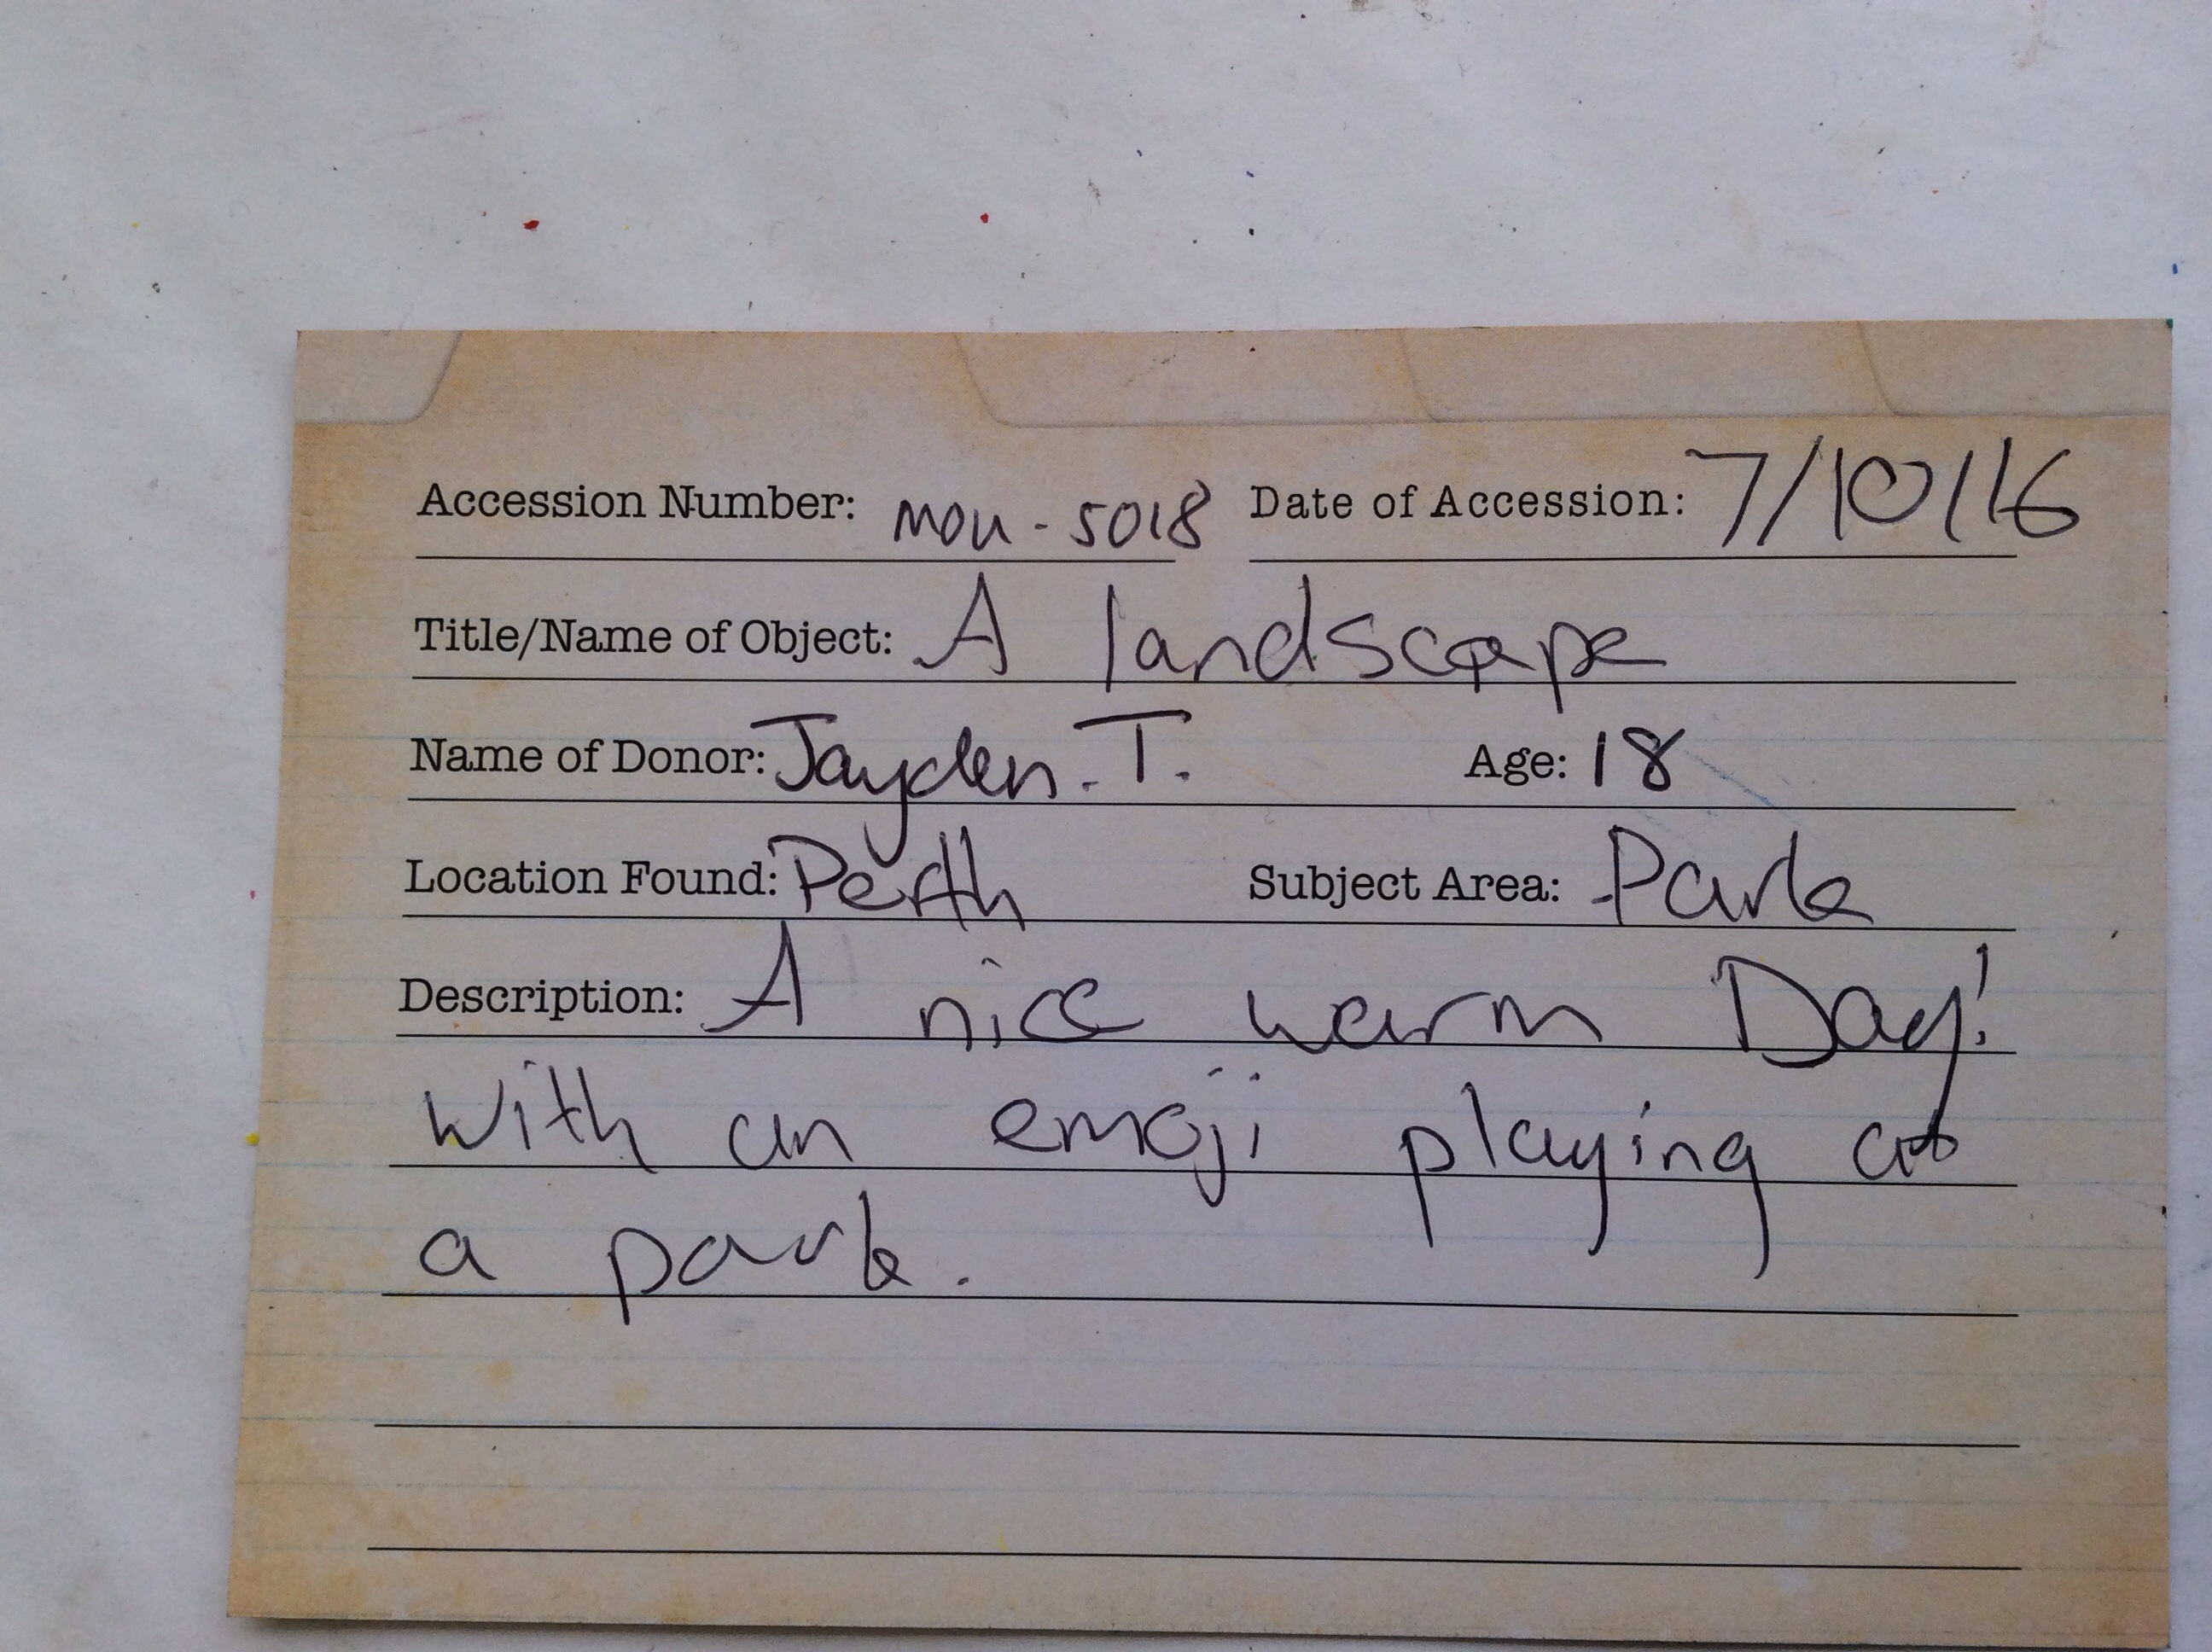 Accession Number: MOU-5018 Date of Accession: 7/10/16
Title/Name of Object: A landscape
Name of Donor: Jayden.T. Age: 18
Location Found: Perth Subject Area: Park
Description: A nice warm Day!
With an emoji playing at
a park.